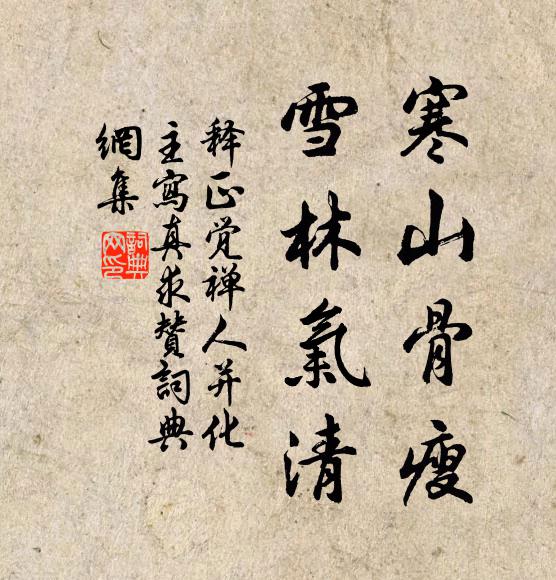 寒山骨瘦
雪林氣清
释正觉禅人并化
主寫真求贊詞典
網集
詞典網印